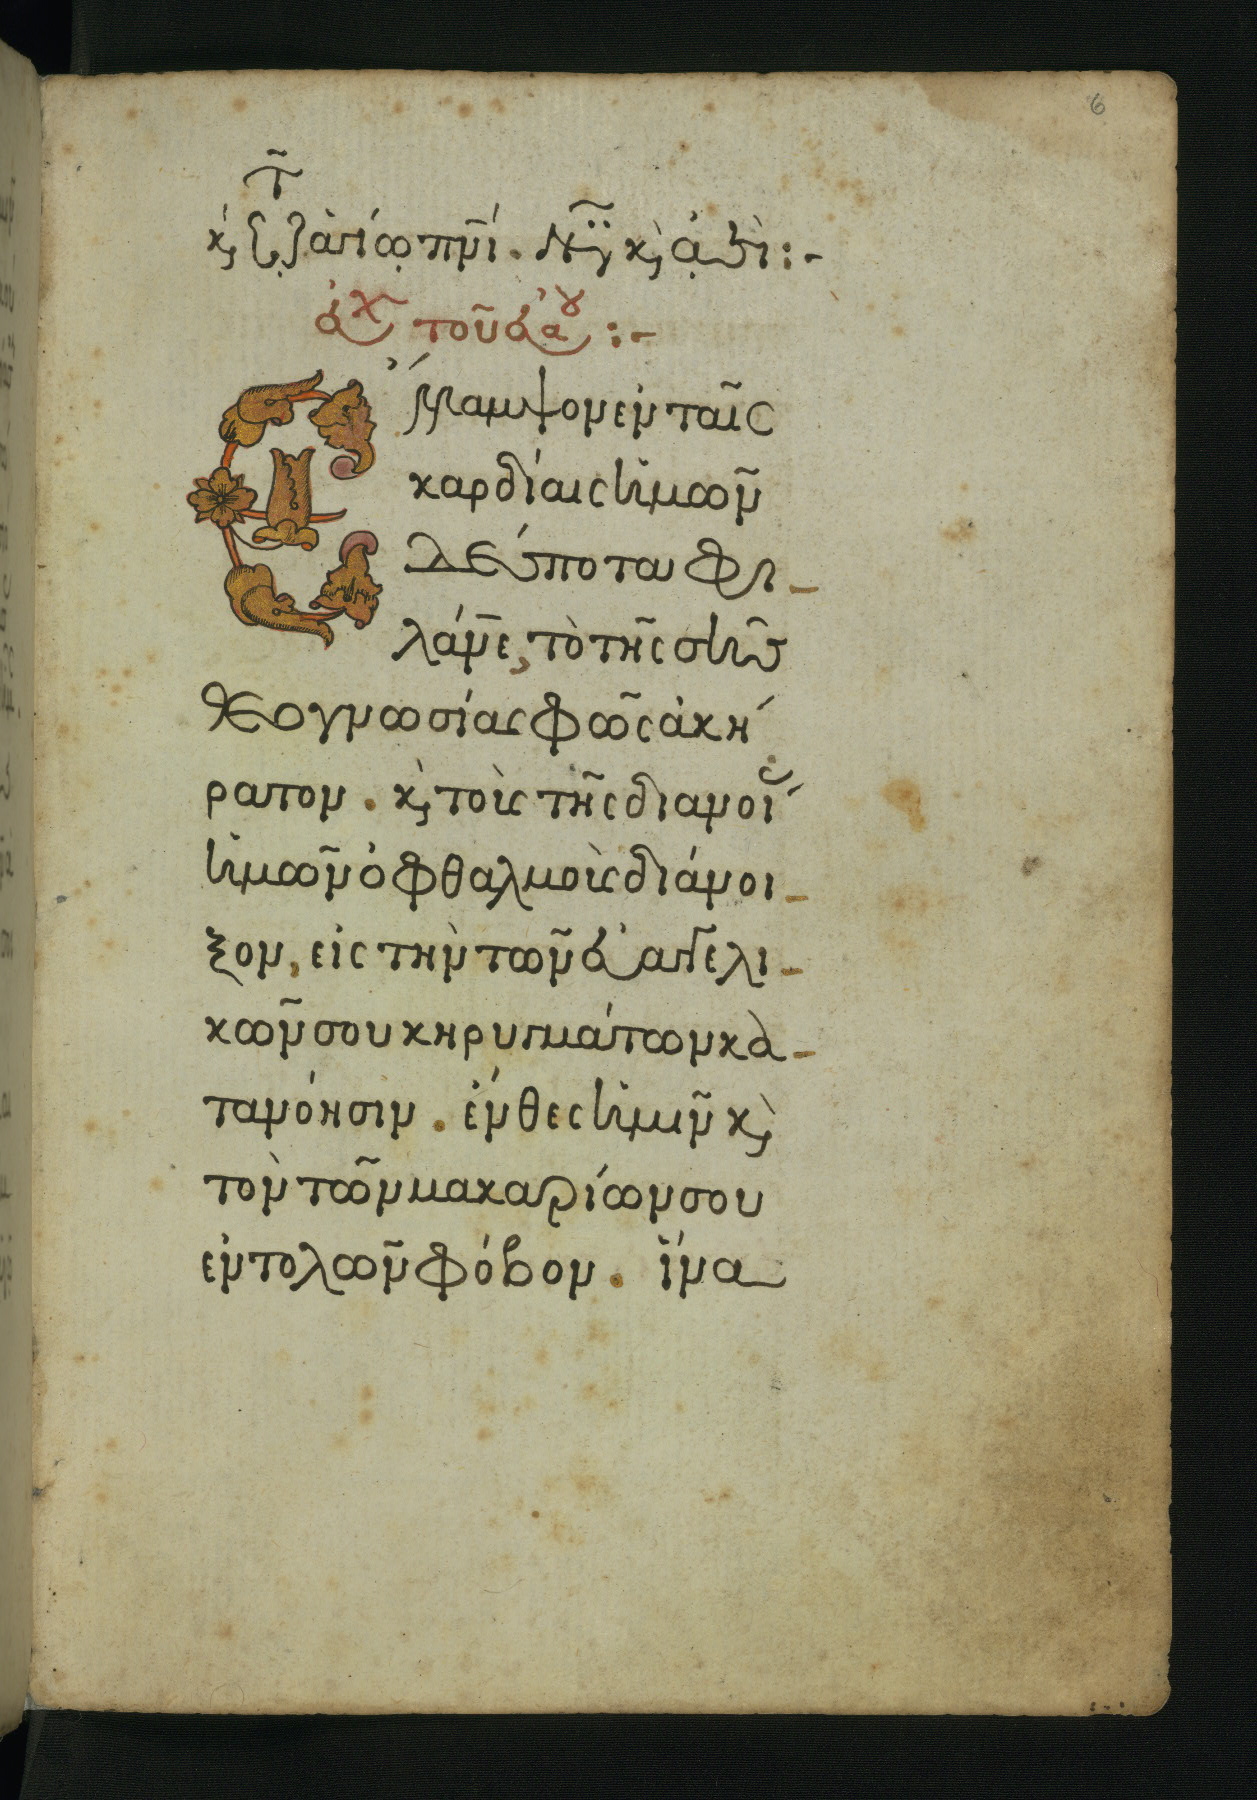 6
κ(αὶ) τ(ῷ) ζ ἁγίῳ πν(εύματ)ι. νῦν κ(αὶ) ἀεὶ :-
εὐχ(ὴ) τοῦ εὐα(γγελίου) :-
Ἔλλαμψον ἐν ταῖς
καρδίαις ἡμῶν
δέσποτα φι-
λάν(θρωπ)ε, τὸ τῆς σῆς
θεογνωσίας φῶς ἀκή-
ρατον. κ(αὶ) τοὺς τῆς διανοί(ας)
ἡμῶν ὀφθαλμοὺς διάνοι-
ξον, εἰς τὴν τῶν εὐαγγελι-
κῶν σου κηρυγμάτων κα-
τανόησιν. ἔνθες ἡμῖν κ(αὶ)
τὸν τῶν μακαρίων σου
ἐντολῶν φόβον. ἵνα